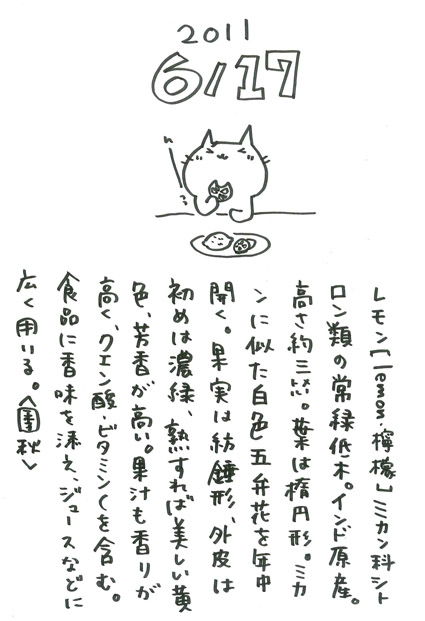 2011
6/17
レモン【lemon・檸檬】ミカン科シト
ロン類の常緑低木。インド原産。
高さ約三㍍。葉は楕円形。ミカ
ンに似た白色五弁花を年中
開く。果実は紡錘形、外皮は
初めは濃緑、熟すれば美しい黄
色、芳香が高い。果汁も香りが
高く、クエン酸・ビタミンCを含む。
食品に香味を添え、ジュースなどに
広く用いる。〈圉秋〉